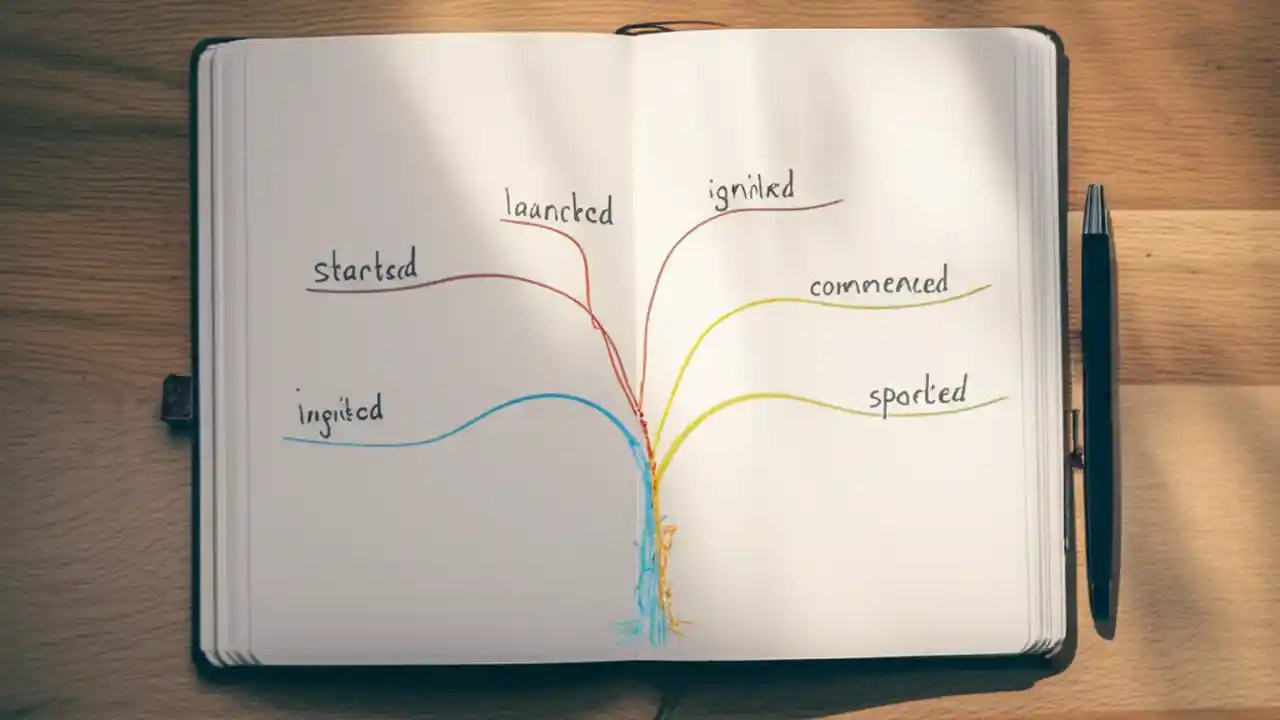 launched
ignited
started
commenced
ingited
sported